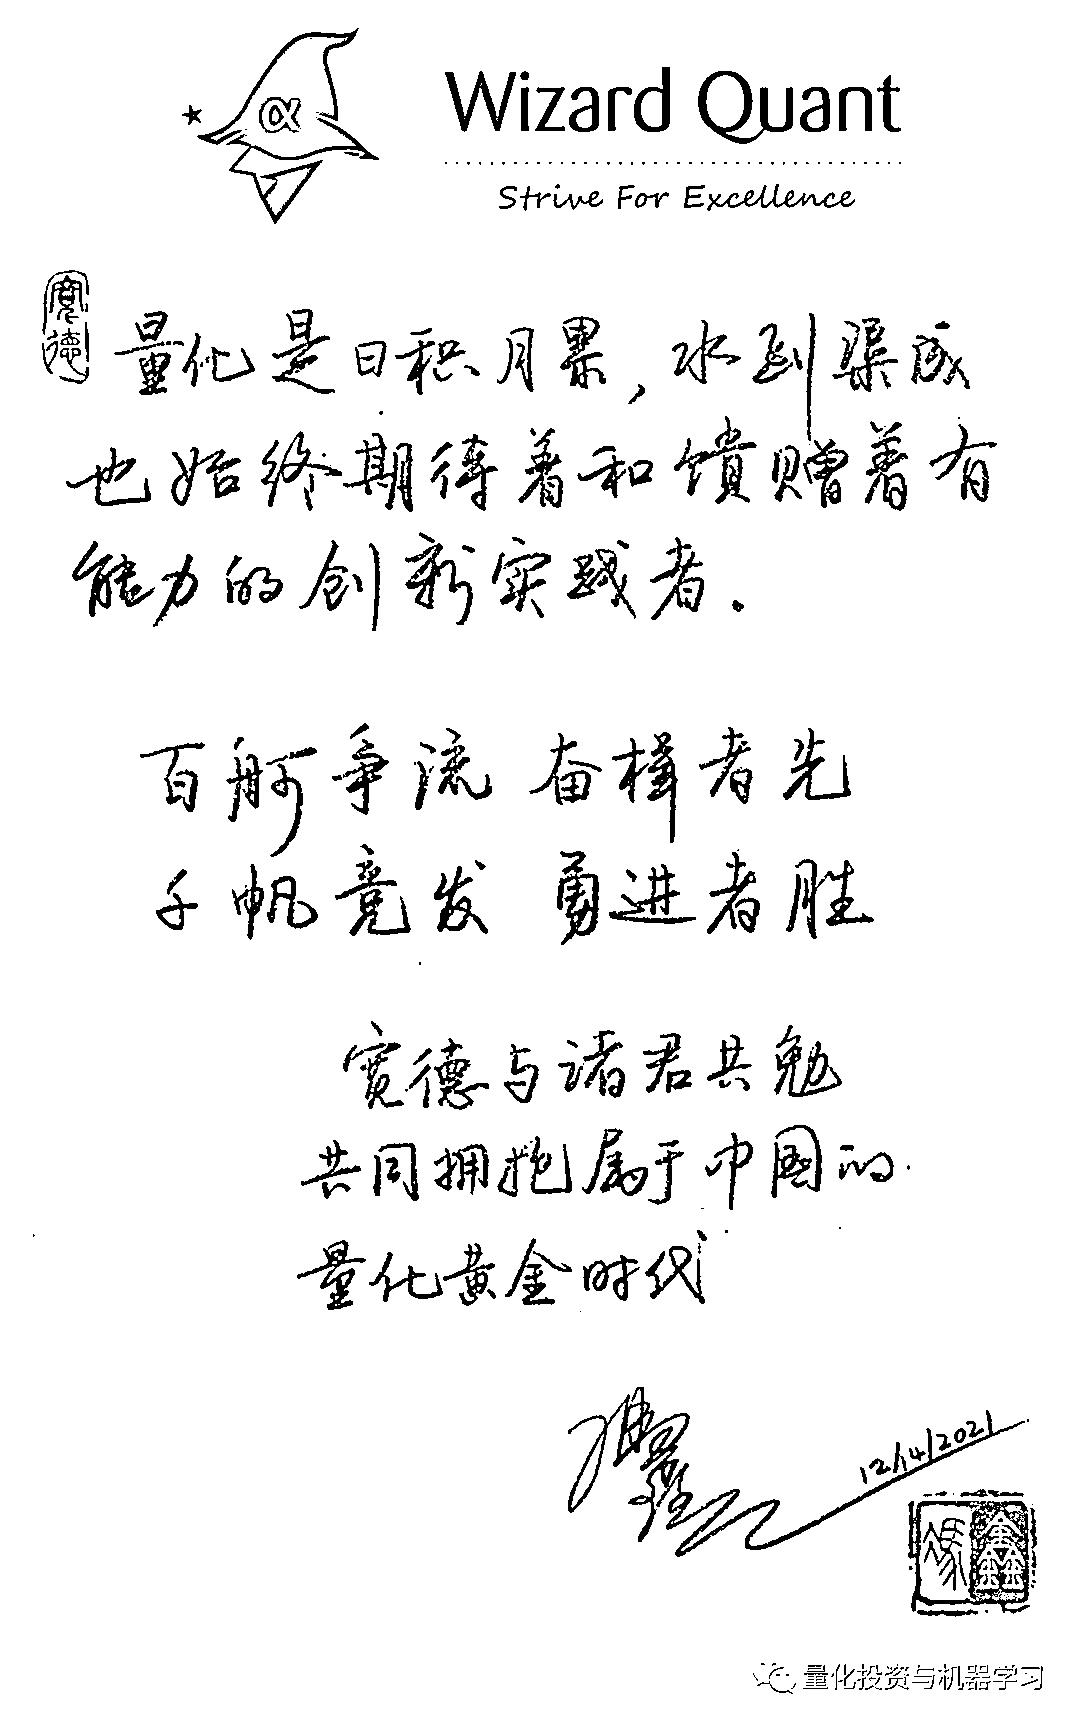 α
Wizard Quant
Strive For Excellence
宽德
量化是日积月累，水到渠成
也始终期待着和馈赠着有
能力的创新实践者.
百舸争流 奋楫者先
千帆竞发 勇进者胜
宽德与诸君共勉
共同拥抱属于中国的
量化黄金时代
12/14/2021
冯鑫
量化投资与机器学习